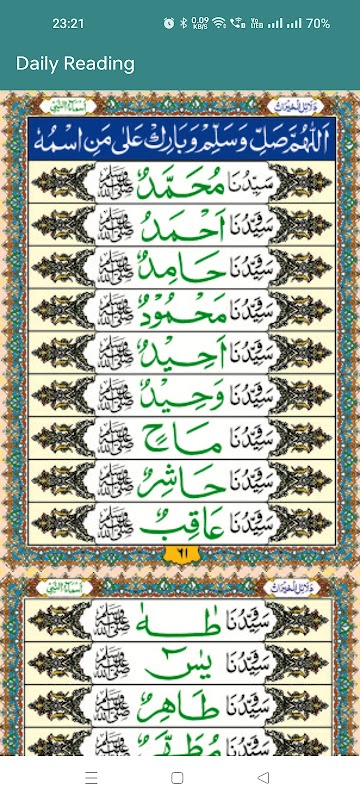 23:21 0.09 KB/S Vo LTE 70%
Daily Reading
دَلَائِلُ الْخَيْرَات اَسْمَاءُ النَّبِيّ
اَللّٰهُمَّ صَلِّ وَسَلِّمْ وَبَارِكْ عَلٰى مَنِ اسْمُهٗ
سَيِّدُنَا مُحَمَّدٌ ﷺ
سَيِّدُنَا اَحْمَدُ ﷺ
سَيِّدُنَا حَامِدٌ ﷺ
سَيِّدُنَا مَحْمُوْدٌ ﷺ
سَيِّدُنَا اَحِيْدٌ ﷺ
سَيِّدُنَا وَحِيْدٌ ﷺ
سَيِّدُنَا مَاحٍ ﷺ
سَيِّدُنَا حَاشِرٌ ﷺ
سَيِّدُنَا عَاقِبٌ ﷺ
٦١
دَلَائِلُ الْخَيْرَات اَسْمَاءُ النَّبِيّ
سَيِّدُنَا طٰهٰ ﷺ
سَيِّدُنَا يٰسٓ ﷺ
سَيِّدُنَا طَاهِرٌ ﷺ
سَيِّدُنَا مُطَهَّرٌ ﷺ